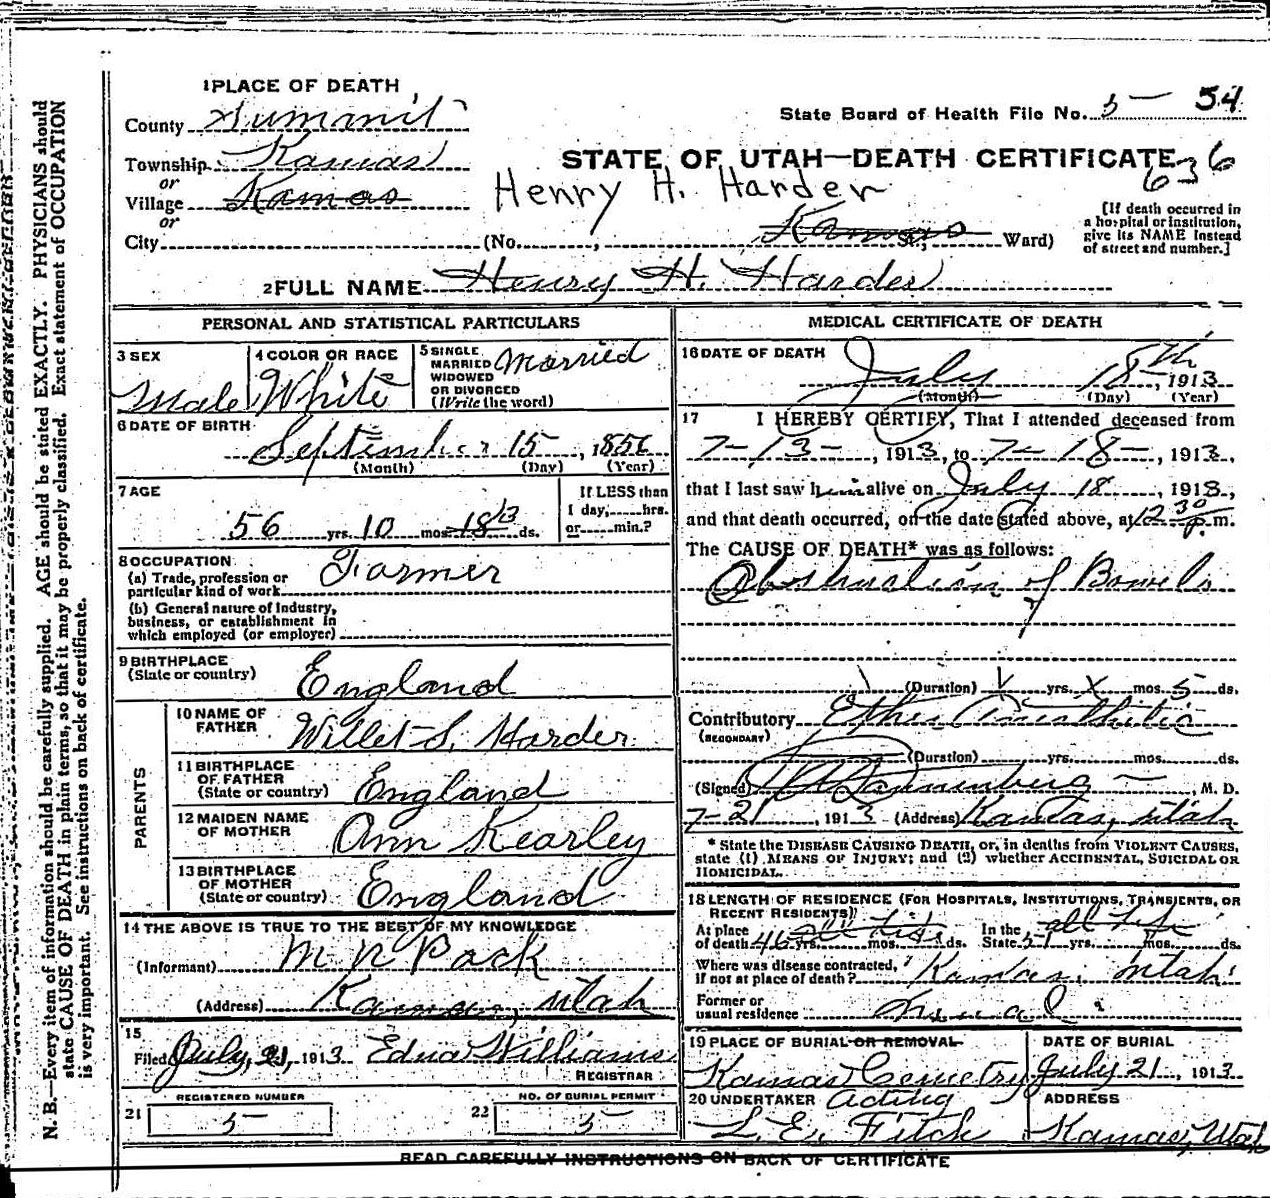 1 PLACE OF DEATH
County Summit
State Board of Health File No. 5 - 54
Township Kamas
or
STATE OF UTAH—DEATH CERTIFICATE
636
Village Kamas
Henry H. Harder
or
City (No. , Kamas St., Ward)
[If death occurred in a hospital or institution, give its NAME instead of street and number.]
2 FULL NAME Henry H. Harder
PERSONAL AND STATISTICAL PARTICULARS
3 SEX
Male
4 COLOR OR RACE
White
5 SINGLE, MARRIED WIDOWED OR DIVORCED (Write the word)
Married
6 DATE OF BIRTH
September 15, 1856
(Month) (Day) (Year)
7 AGE
56 yrs. 10 mos. 18 3 ds.
If LESS than 1 day, hrs. or min.?
8 OCCUPATION
(a) Trade, profession or particular kind of work Farmer
(b) General nature of Industry, business, or establishment in which employed (or employer)
9 BIRTHPLACE
(State or country) England
PARENTS
10 NAME OF FATHER Willet S. Harder
11 BIRTHPLACE OF FATHER
(State or country) England
12 MAIDEN NAME OF MOTHER Ann Kearley
13 BIRTHPLACE OF MOTHER
(State or country) England
14 THE ABOVE IS TRUE TO THE BEST OF MY KNOWLEDGE
(Informant) M R Pack
(Address) Kamas, Utah
15
Filed July, 21, 1913 Edna Williams
REGISTRAR
REGISTERED NUMBER
21 5
NO. OF BURIAL PERMIT
22 5
MEDICAL CERTIFICATE OF DEATH
16 DATE OF DEATH
July 18th, 1913
(Month) (Day) (Year)
17 I HEREBY CERTIFY, That I attended deceased from
7-13-, 1913, to 7-18-, 1913,
that I last saw him alive on July 18, 1913,
and that death occurred, on the date stated above, at 12 30 p.m.
The CAUSE OF DEATH* was as follows:
Obstruction of Bowels
(Duration) yrs. X mos. 5 ds.
Contributory Ether
(SECONDARY)
(Duration) yrs. mos. ds.
(Signed) M. D.
7-21, 1913 (Address) Kamas, Utah
* State the DISEASE CAUSING DEATH, or, in deaths from VIOLENT CAUSES,
state (1) MEANS OF INJURY; and (2) whether ACCIDENTAL, SUICIDAL OR
HOMICIDAL.
18 LENGTH OF RESIDENCE (FOR HOSPITALS, INSTITUTIONS, TRANSIENTS, OR
RECENT RESIDENTS)
At place of death 46 yrs. all life mos. ds. In the State yrs. all life mos. ds.
Where was disease contracted, if not at place of death? Kamas, Utah
Former or usual residence
19 PLACE OF BURIAL OR REMOVAL
Kamas Cemetry
DATE OF BURIAL
July 21, 1913
20 UNDERTAKER Acting
L. E. Fitch
ADDRESS
Kamas, Utah
READ CAREFULLY INSTRUCTIONS ON BACK OF CERTIFICATE
N. B.—Every item of information should be carefully supplied. AGE should be stated EXACTLY. PHYSICIANS should
state CAUSE OF DEATH in plain terms, so that it may be properly classified. Exact statement of OCCUPATION
is very important. See instructions on back of certificate.